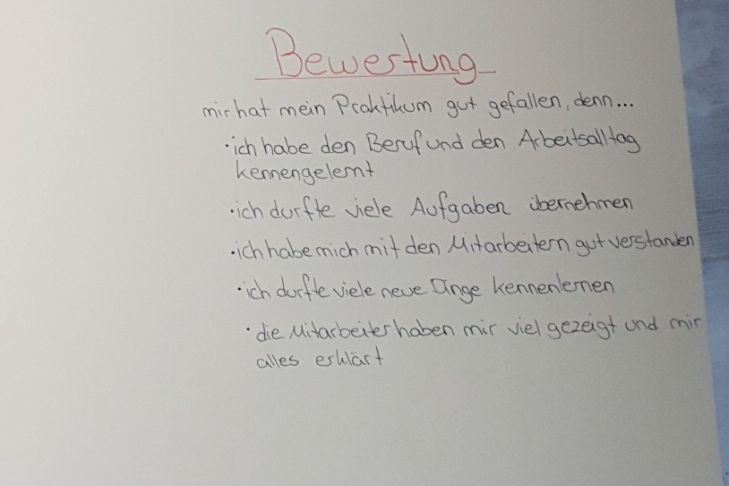 Bewertung
mir hat mein Praktikum gut gefallen, denn...
• ich habe den Beruf und den Arbeitsalltag
kennengelernt
• ich durfte viele Aufgaben übernehmen
• ich habe mich mit den Mitarbeitern gut verstanden
• ich durfte viele neue Dinge kennenlernen
• die Mitarbeiter haben mir viel gezeigt und mir
alles erklärt